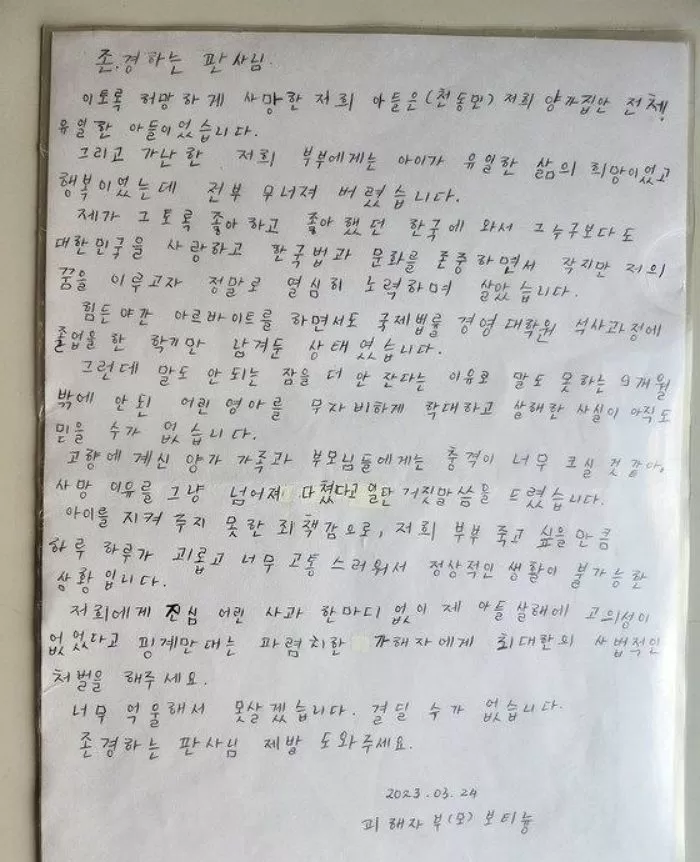 존경하는 판사님.
이토록 허망하게 사망한 저희 아들은(천동민) 저희 양가집안 전체,
유일한 아들이었습니다.
그리고 가난한 저희 부부에게는 아이가 유일한 삶의 희망이었고
행복이였는데 전부 무너져 버렸습니다.
제가 그토록 좋아하고 좋아했던 한국에 와서 그누구보다도
대한민국을 사랑하고 한국법과 문화를 존중하면서 작지만 저의
꿈을 이루고자 정말로 열심히 노력하며 살았습니다.
힘든 야간 아르바이트를 하면서도 국제법률 경영 대학원 석사과정에
졸업을 한 학기만 남겨둔 상태였습니다.
그런데 말도 안되는 잠을 더 안 잔다는 이유로 말도 못하는 9개월
밖에 안된 어린 영아를 무자비하게 학대하고 살해한 사실이 아직도
믿을 수가 없습니다.
고향에 계신 양가 가족과 부모님들에게는 충격이 너무 크실 것 같아,
사망 이유를 그냥 넘어져 다쳤다고 일단 거짓말씀을 드렸습니다.
아이를 지켜 주지 못한 죄책감으로, 저희 부부 죽고 싶을만큼
하루 하루가 괴롭고 너무 고통 스러워서 정상적인 생활이 불가능한
상황입니다.
저희에게 진심 어린 사과 한마디 없이 제 아들 살해에 고의성이
없었다고 핑계만대는 파렴치한 가해자에게 최대한의 사법적인
처벌을 해주세요.
너무 억울해서 못살겠습니다. 견딜 수가 없습니다.
존경하는 판사님 제발 도와주세요.
2023.03.24
피해자 부(모) 보티늉